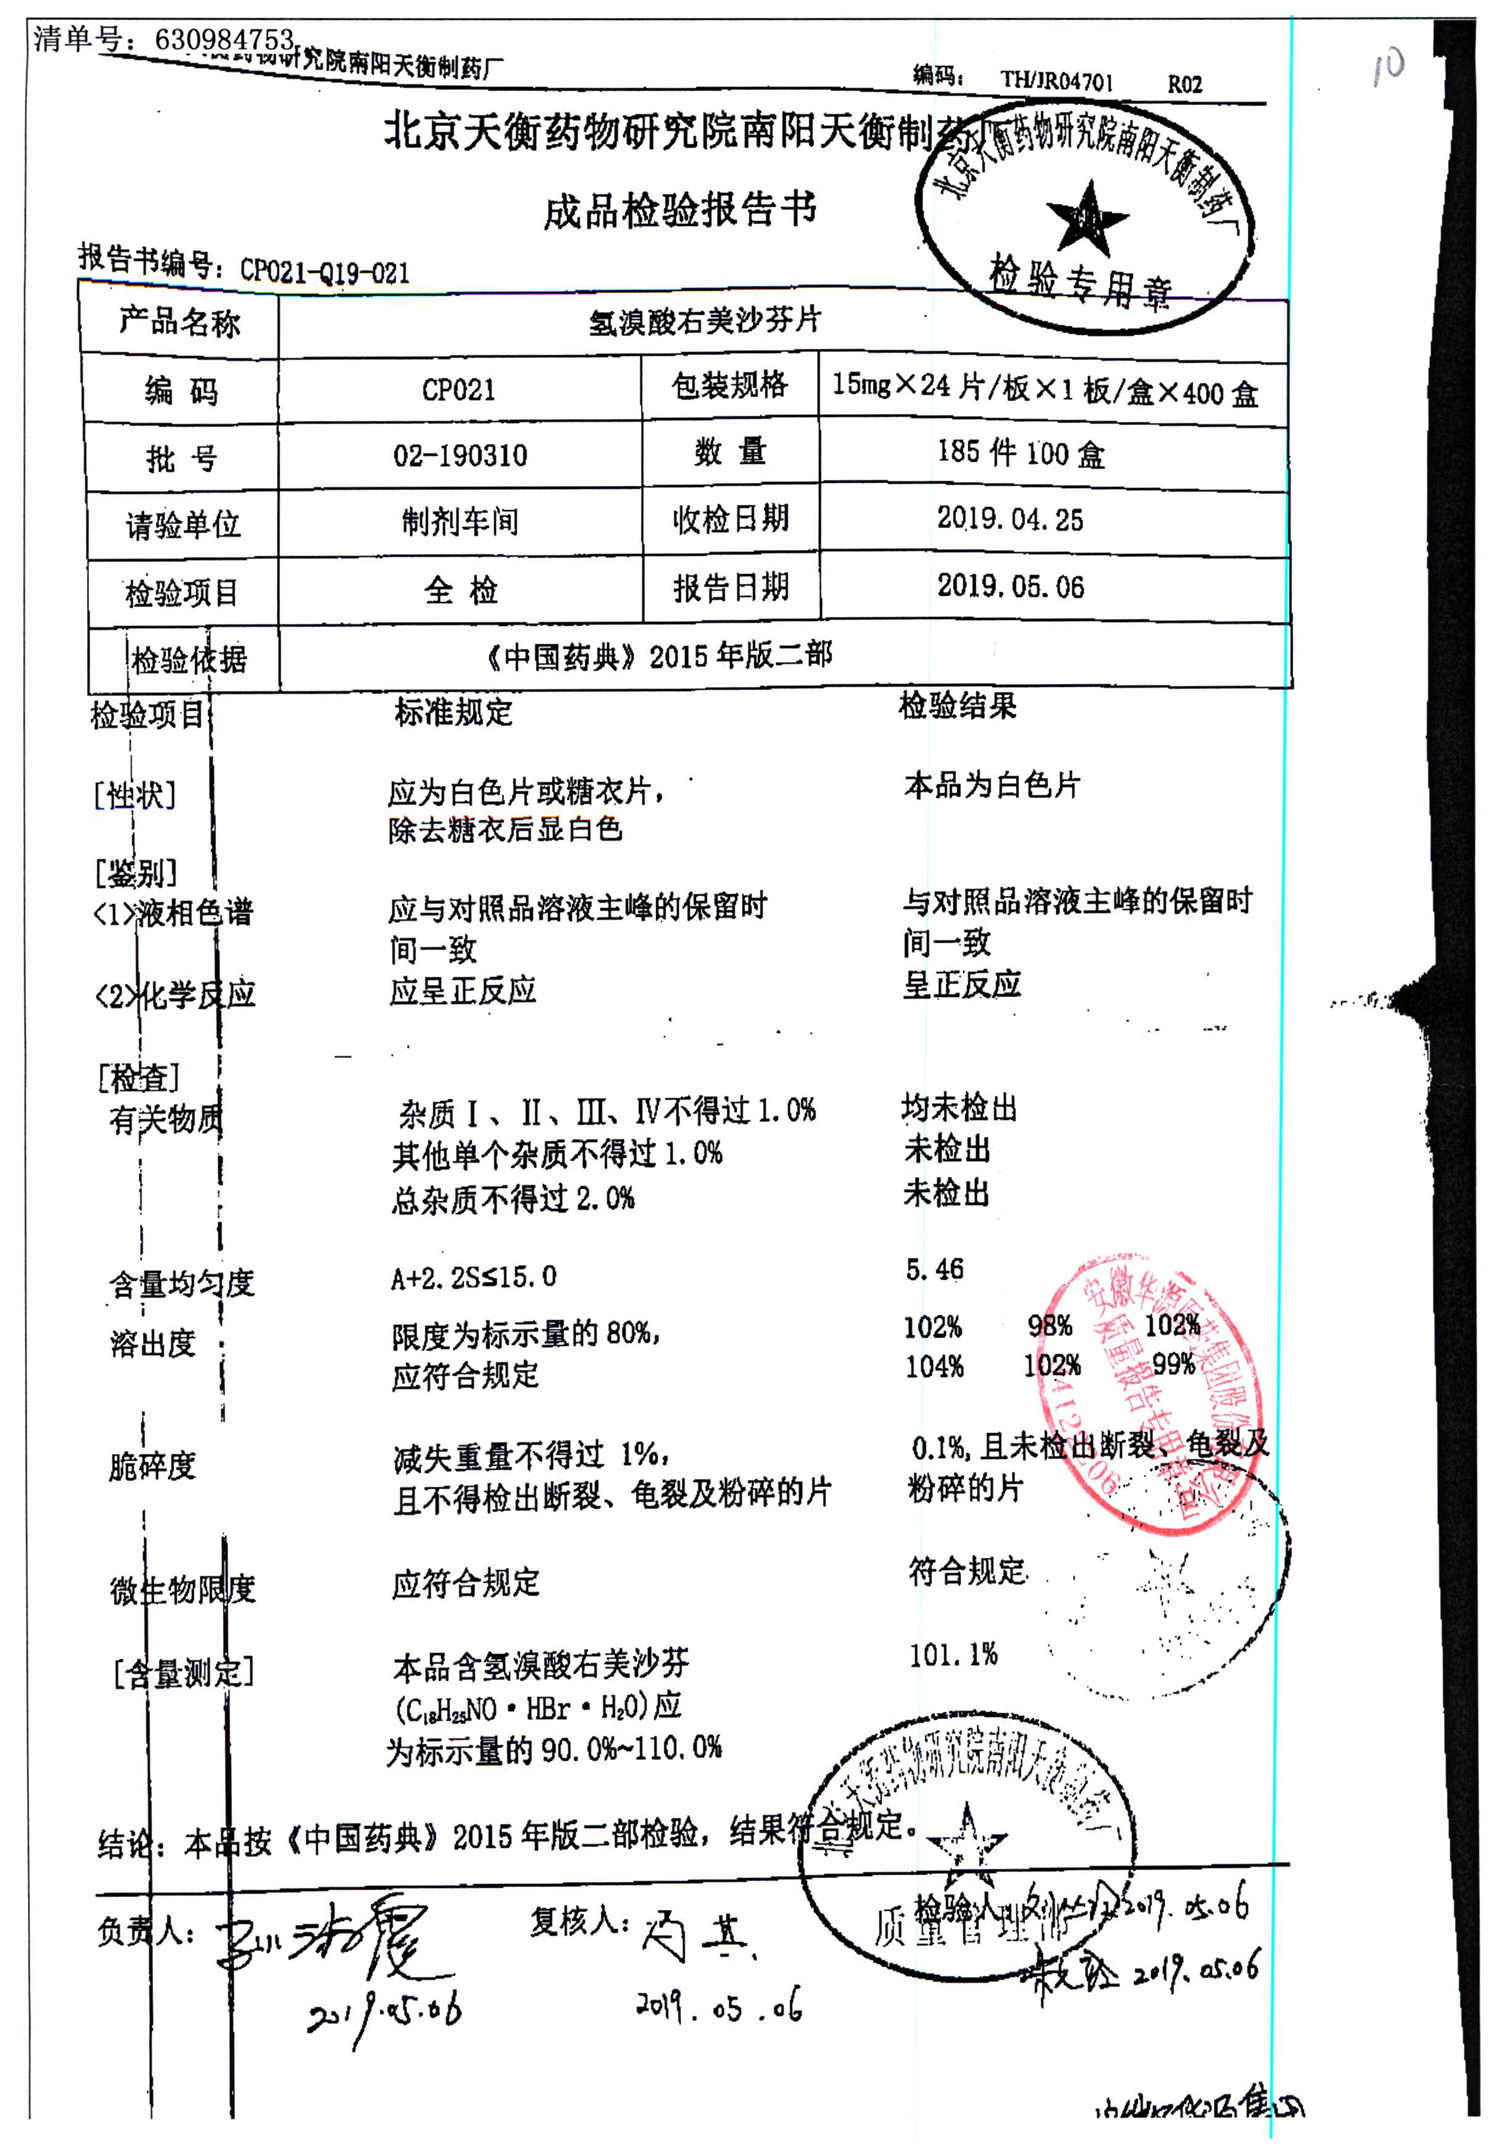 清单号：630984753
药物研究院南阳天衡制药厂
编码： TH/JR04701 R02
10
北京天衡药物研究院南阳天衡制药厂
成品检验报告书
北京天衡药物研究院南阳天衡制药厂
检验专用章
报告书编号：CP021-Q19-021
产品名称 氢溴酸右美沙芬片
编 码 CP021 包装规格 15mg×24片/板×1板/盒×400盒
批 号 02-190310 数 量 185件100盒
请验单位 制剂车间 收检日期 2019.04.25
检验项目 全 检 报告日期 2019.05.06
检验依据 《中国药典》2015年版二部
检验项目 标准规定 检验结果
[性状] 应为白色片或糖衣片， 本品为白色片
除去糖衣后显白色
[鉴别]
<1>液相色谱 应与对照品溶液主峰的保留时 与对照品溶液主峰的保留时
间一致 间一致
<2>化学反应 应呈正反应 呈正反应
[检查]
有关物质 杂质Ⅰ、Ⅱ、Ⅲ、Ⅳ不得过1.0% 均未检出
其他单个杂质不得过1.0% 未检出
总杂质不得过2.0% 未检出
含量均匀度 A+2.2S≤15.0 5.46
溶出度 限度为标示量的80%， 102% 98% 102%
应符合规定 104% 102% 99%
脆碎度 减失重量不得过 1%， 0.1%,且未检出断裂、龟裂及
且不得检出断裂、龟裂及粉碎的片 粉碎的片
安徽华源医药集团股份有限公司
质量报告专用章
微生物限度 应符合规定 符合规定
[含量测定] 本品含氢溴酸右美沙芬 101.1%
(C₁₈H₂₅NO·HBr·H₂O)应
为标示量的90.0%~110.0%
结论：本品按《中国药典》2015年版二部检验，结果符合规定。
质量管理部
负责人： 复核人： 检验人 2019.05.06
2019.05.06 2019.05.06 2019.05.06